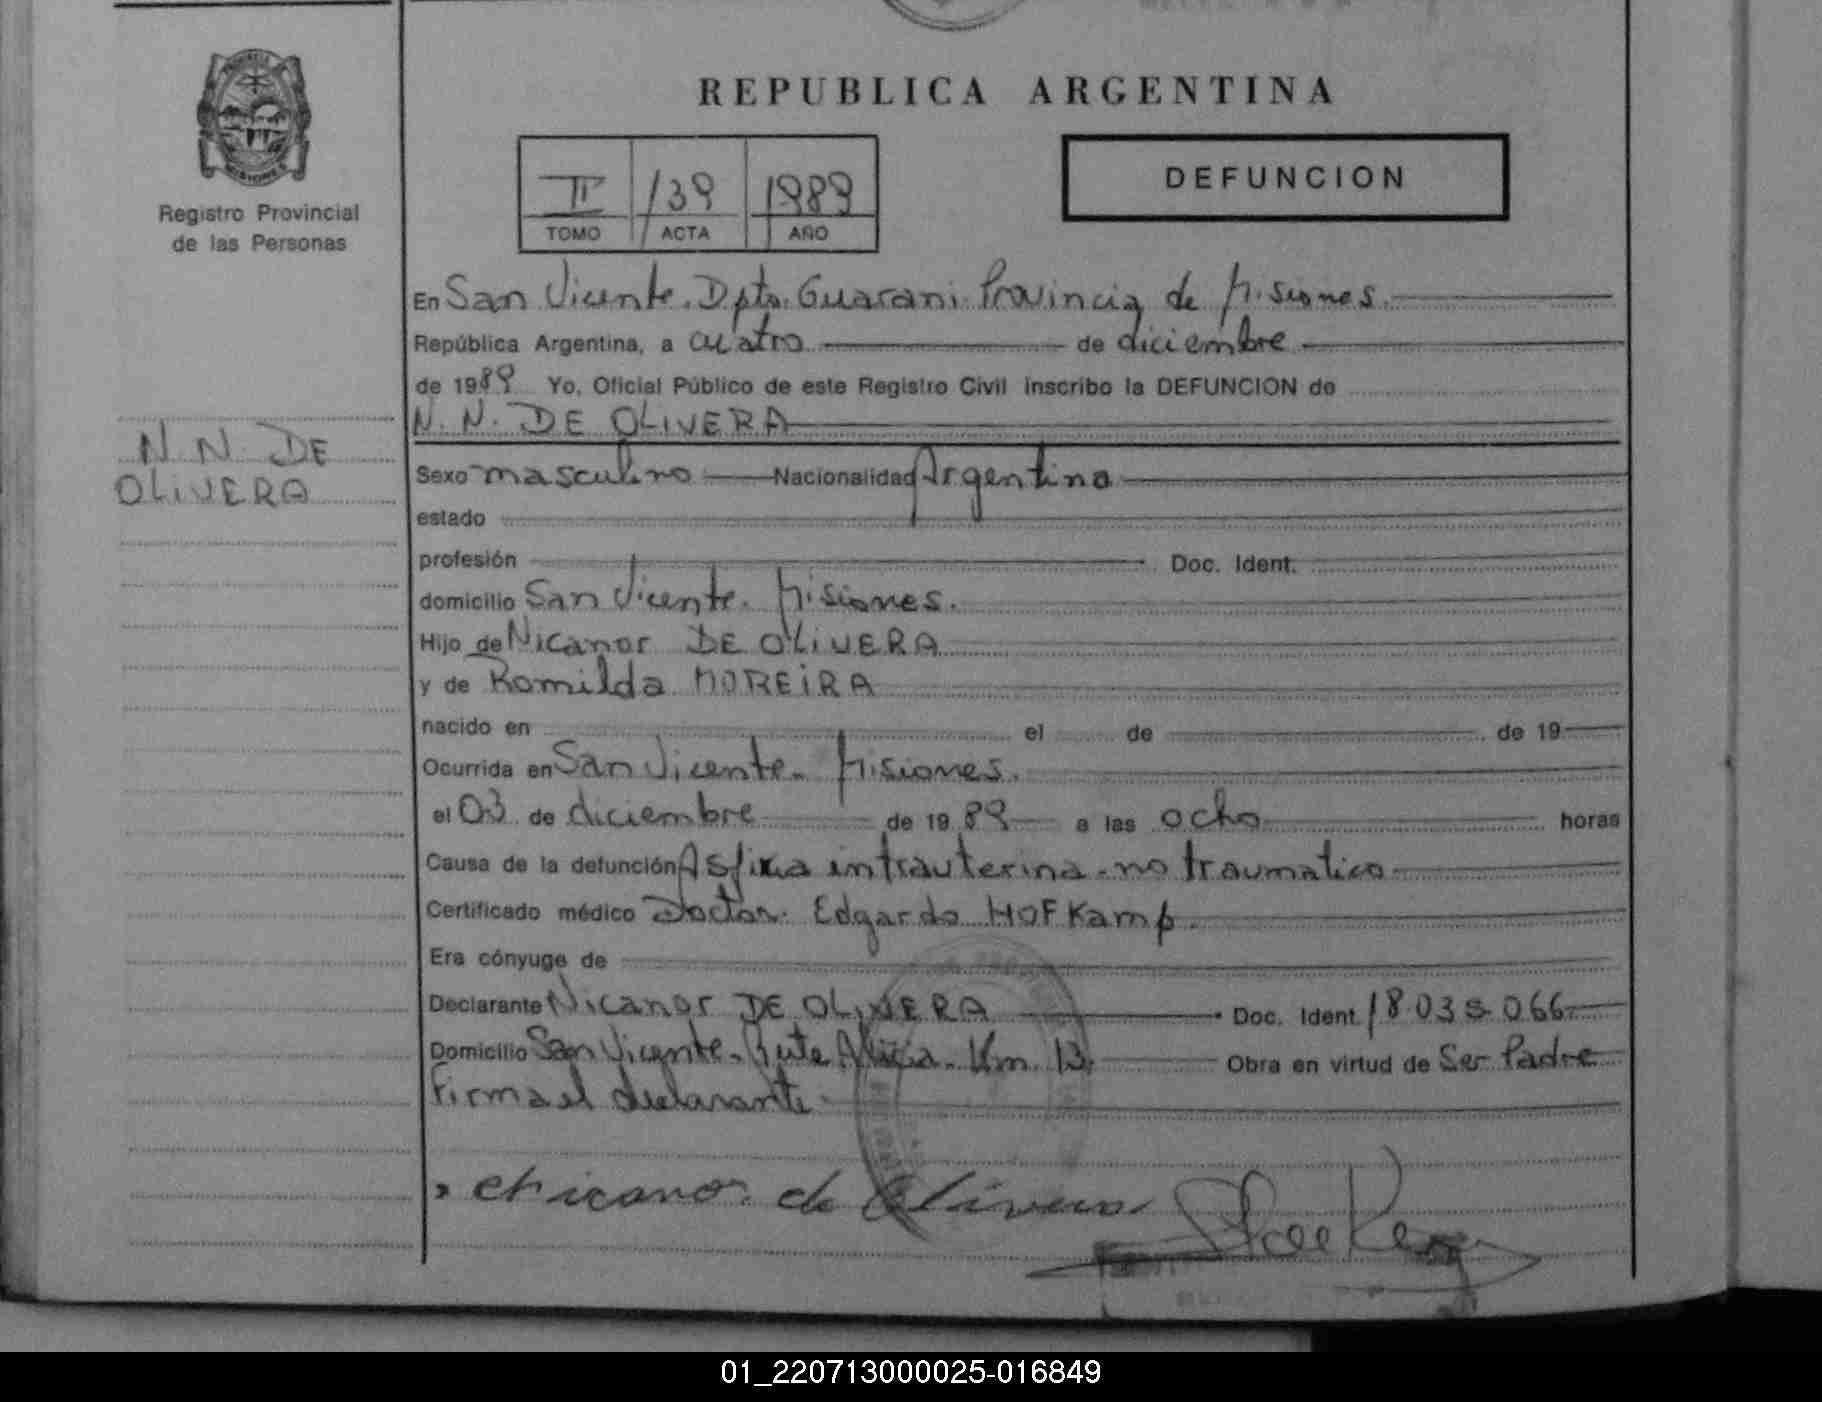 REPUBLICA ARGENTINA
Registro Provincial
de las Personas
II 139 1989
TOMO ACTA AÑO
DEFUNCION
En San Vicente. Dpto. Guarani Provincia de Misiones.
República Argentina, a cuatro de diciembre
de 1989 Yo, Oficial Público de este Registro Civil inscribo la DEFUNCION de
N. N. DE OLIVERA
N. N. DE
OLIVERA
Sexo masculino Nacionalidad Argentina
estado
profesión Doc. Ident.
domicilio San Vicente. Misiones.
Hijo de Nicanor DE OLIVERA
y de Romilda MOREIRA
nacido en el de de 19
Ocurrida en San Vicente. Misiones.
el 03 de diciembre de 1989 a las ocho horas
Causa de la defunción Asfixia intrauterina - no traumatico
Certificado médico Doctor: Edgardo HOFKamp.
Era cónyuge de
Declarante Nicanor DE OLIVERA Doc. Ident. 18.035.066
Domicilio San Vicente. Ruta Alicia. Km. 13. Obra en virtud de Ser Padre
Firma el declarante.
Nicanor de Olivera
01_220713000025-016849